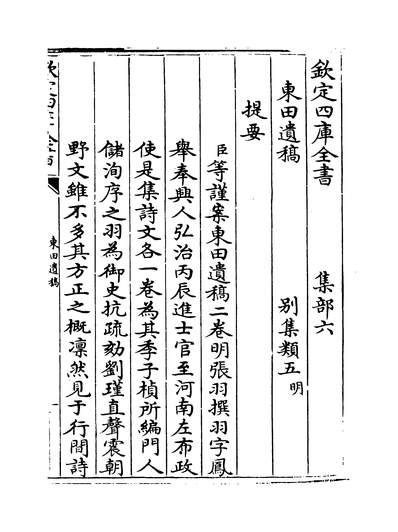 欽定四庫全書 集部六
東田遺稿 别集類五明
提要
臣等謹案東田遺稿二卷明張羽撰羽字鳳
舉奉興人弘治丙辰進士官至河南左布政
使是集詩文各一卷為其季子楨所編門人
儲洵序之羽為御史抗疏劾劉瑾直聲震朝
野文雖不多其方正之概凛然見于行間詩
東田遺稿
一